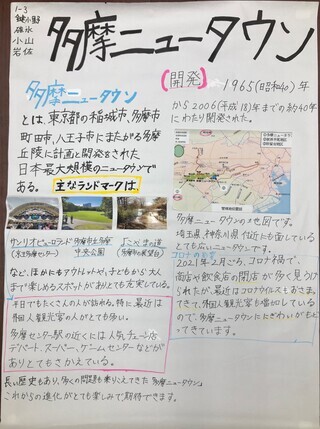 1-3
鍵小野
碓氷
小山
岩佐
多摩ニュータウン
(開発)
多摩ニュータウン
とは、東京都の稲城市、多摩市
町田市、八王子市にまたがる多摩
丘陵に計画と開発をされた
日本最大規模のニュータウンで
ある。主なランドマークは、
サンリオピューロランド
多摩市立多摩
中央公園
よこやまの道
(多摩市の展望台)
など、ほかにもアウトレットや、子どもから大人
まで楽しめるスポットがありとても充実している。
平日でもたくさんの人が訪れる。特に最近は
外国人観光客の人がとても多い。
多摩センター駅の近くには人気チェーン店
デパート、スーパー、ゲームセンターなどが
ありとてもさかえている。
1965(昭和40)年
から2006(平成18)年までの約40年
にわたり開発された。
多摩ニュータウンの地図です。
埼玉県、神奈川県付近にも面している
とても広いニュータウンです。
コロナの影響
2021年2月ごろ、コロナ禍で、
商店や飲食店の閉店が多く見うけ
られたが、最近はコロナウイルスもおさま
ってきて、外国人観光客も増加している
ので、多摩ニュータウンににぎわいがもど
ってきています。
長い歴史もあり、多くの問題も乗りこえてきた多摩ニュータウン。
これからの進化がとても楽しみで期待できます。